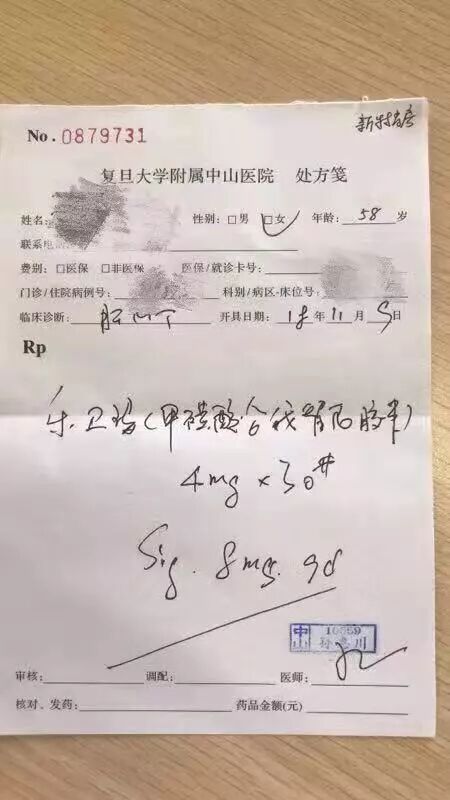 新特药房
No. 0879731
复旦大学附属中山医院 处方笺
姓名: 性别: □男 □女 年龄: 58 岁
联系电
费别: □医保 □非医保 医保/就诊卡号:
门诊/住院病例号: 科别/病区-床位号:
临床诊断: 开具日期: 18 年 11 月 5 日
Rp
乐卫玛(甲磺酸仑伐替尼胶囊)
4mg × 30#
Sig. 8mg. qd
中山 10559
审核: 调配: 医师:
核对、发药: 药品金额(元)